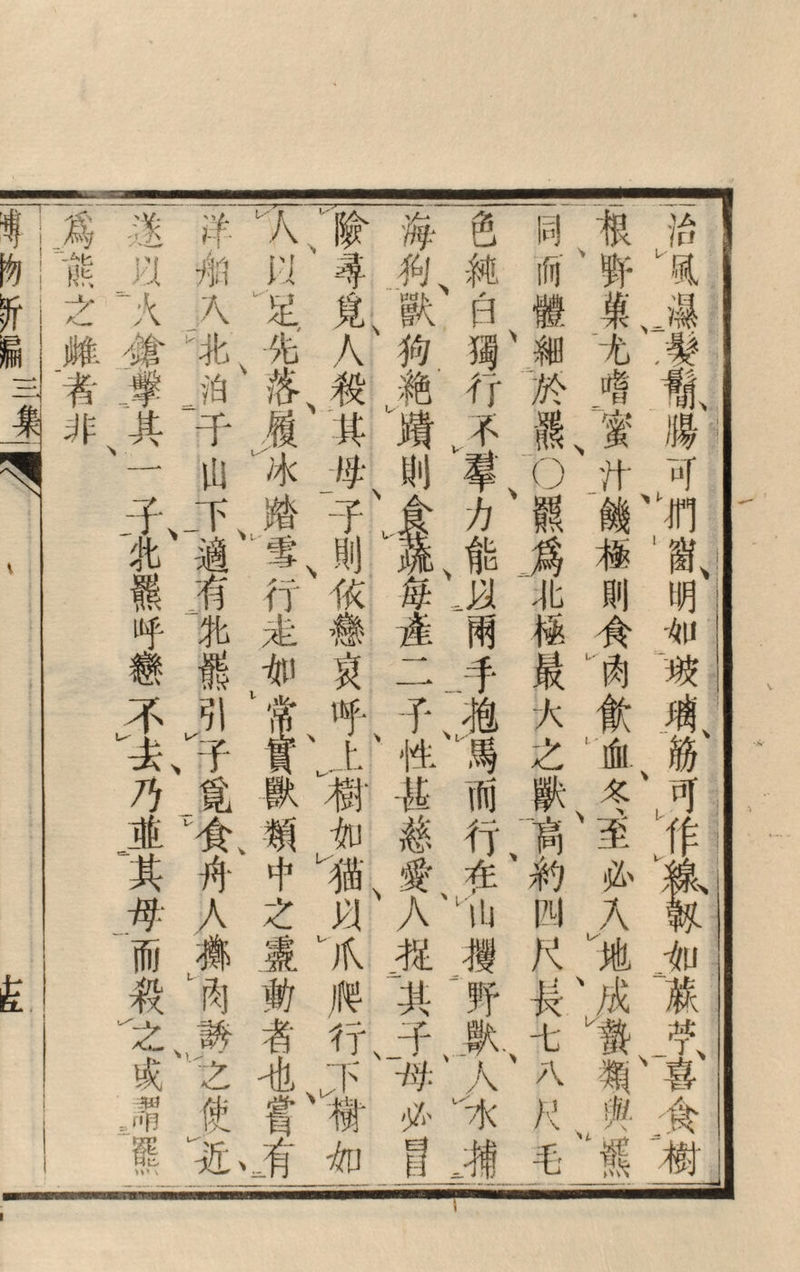 治風濕髮鬅腸可捫窗明如玻璃筋可作線韌如蔴苧喜食樹
根野菓尤嗜蜜汁饑極則食肉飲血冬至必入地成蟄類與羆
同而體細於羆〇羆爲北極最大之獸高約四尺長七八尺毛
色純白獨行不羣力能以兩手抱馬而行在山攫野獸人水捕
海狗獸狗絶蹟則食蔬每產二子性甚慈愛人捉其子母必冒
險尋覓人殺其母子則依戀哀呼上樹如猫以爪爬行下樹如
人以足先落履冰踏雪行走如常實獸類中之靈動者也嘗有
洋舶入北泊于山下適有牝羆引子覓食舟人擲肉誘之使近
遂以火鎗擊其一子牝羆呼戀不去乃並其母而殺之或謂羆
爲熊之雌者非
博物新編 三集 十五